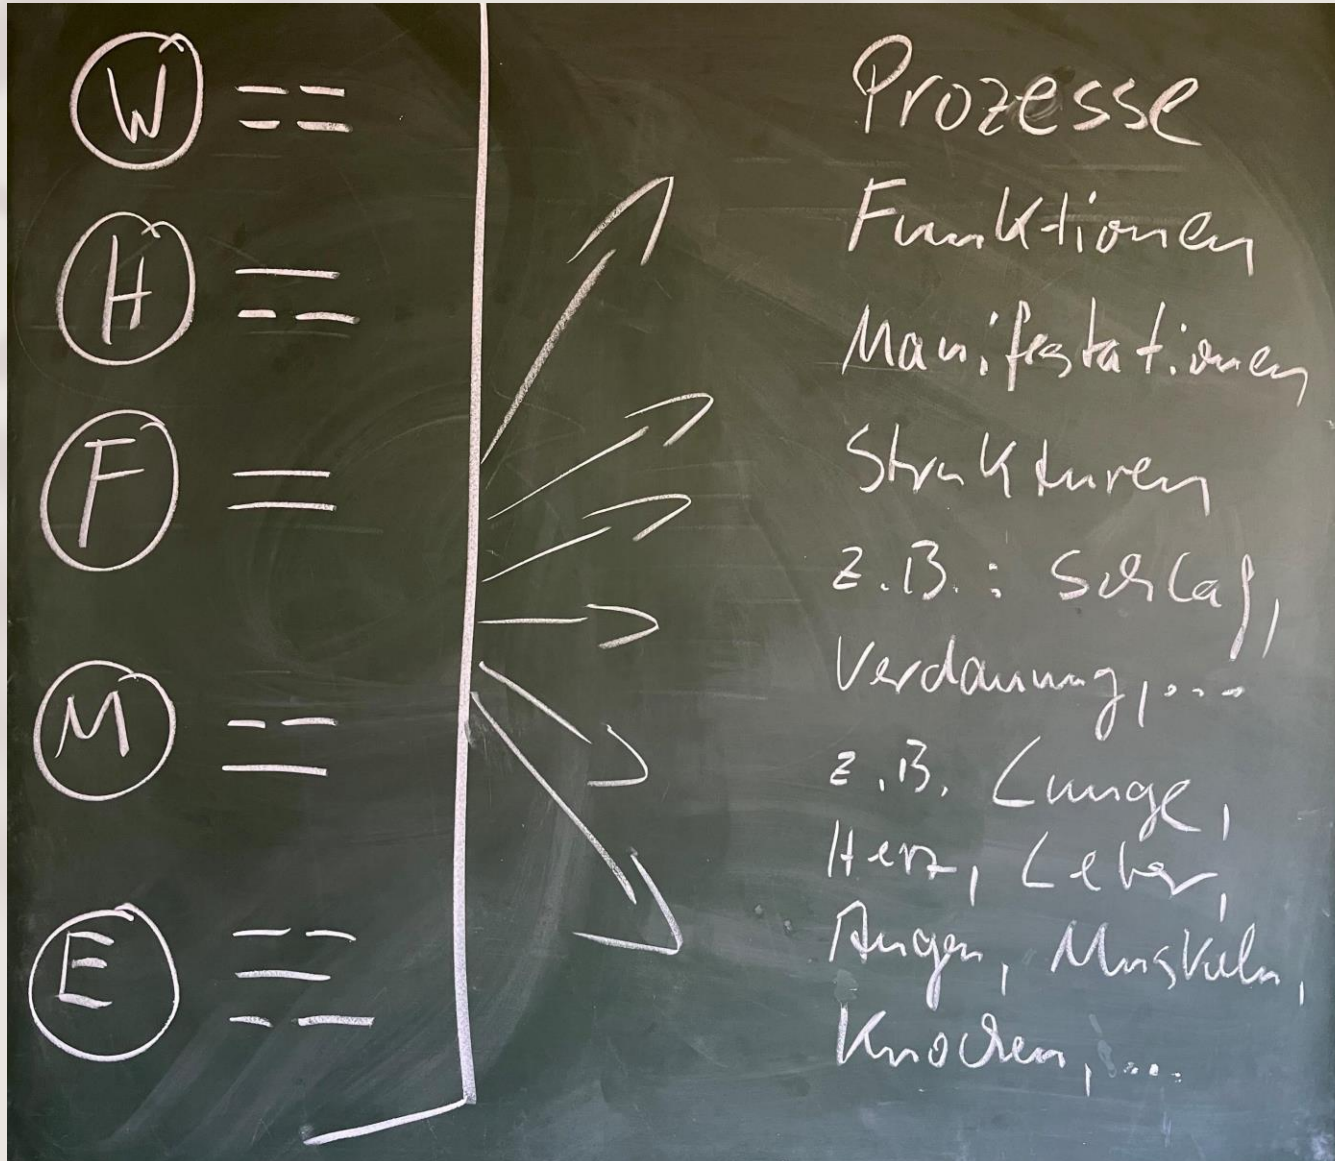 W
H
F
M
E
Prozesse
Funktionen
Manifestationen
Strukturen
z.B.: Schlaf,
Verdauung, ...
z.B. Lunge,
Herz, Leber,
Augen, Muskeln,
Knochen, ...